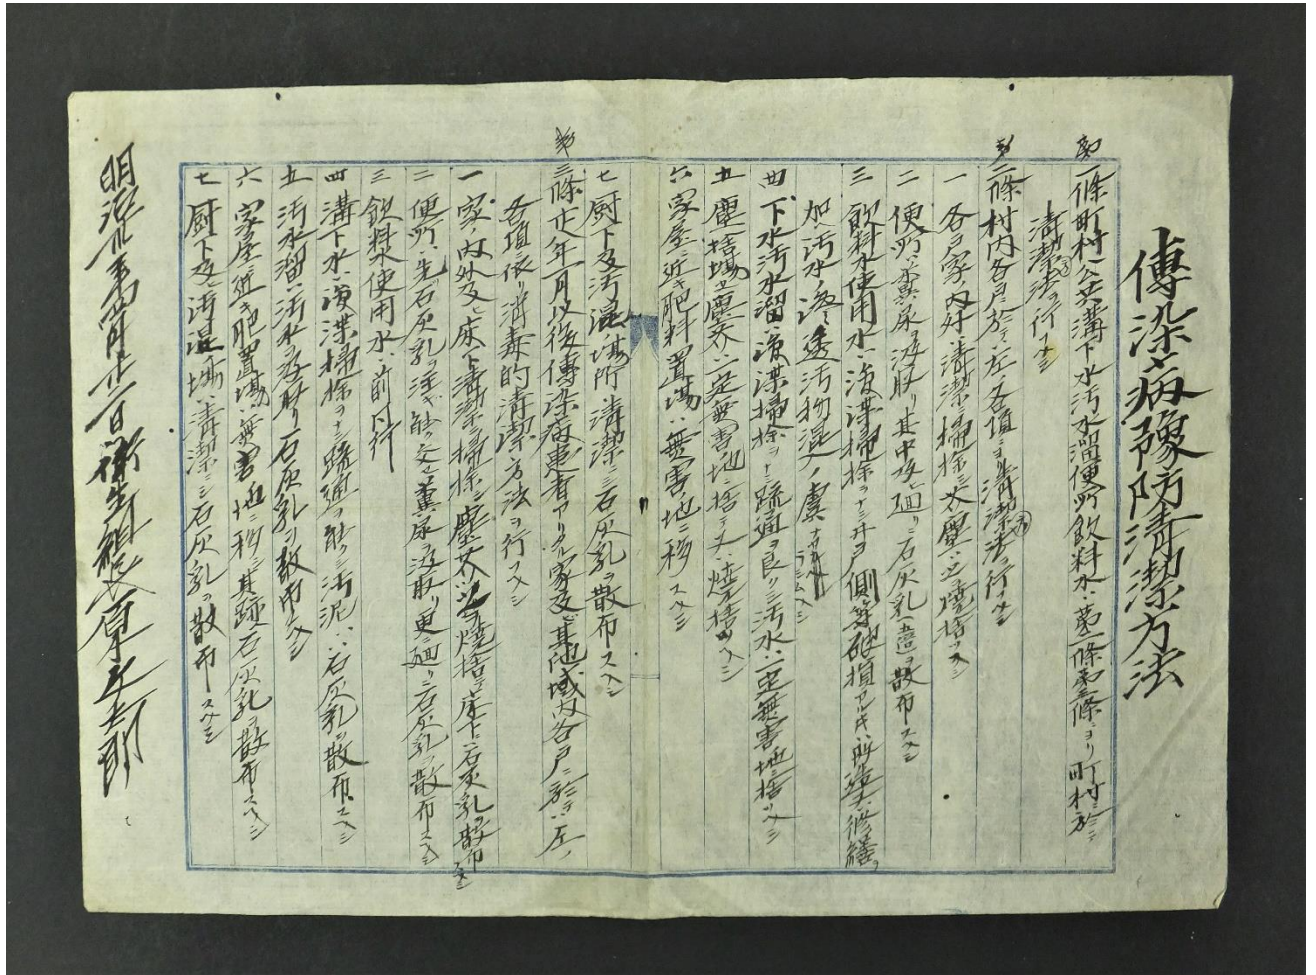 傳染病豫防清潔方法
第一條町村ノ公共溝下水汚水溜便所飲料水ハ第二條第三條ニヨリ町村ニ於テ
清潔法ヲ行フヘシ
第二條村内各戸ニ於テハ左ノ各項ニヨリ清潔法ヲ行フヘシ
一 各戸家ノ内外ハ清潔ニ掃除シ大塵ハ焼捨ツヘシ
二 便所ハ糞尿ヲ汲取リ其中及廻リニ石灰乳ヲ散布スヘシ
三 飲料水使用水ハ浚渫掃除ヲナシ井戸側等破損アルハ修繕ヲ
加ヘ汚水ノ滲透汚物混入ノ虞ナカラシムヘシ
四 下水汚水溜ハ浚渫掃除ヲナシ疏通ヲ良クシ汚水ハ一定無害ノ地ニ捨ツヘシ
五 塵捨場ノ塵芥ハ一定無害ノ地ニ捨テ又ハ焼キ捨ツヘシ
六 家屋ニ近キ肥料置場ハ無害ノ地ニ移スヘシ
七 厨下及汚湿ノ場所ハ清潔ニシ石灰乳ヲ散布スヘシ
第三條 年一月以後傳染病患者アリタル家及其他域内各戸ニ於テハ左ノ
各項ニ依リ消毒的清潔方法ヲ行フヘシ
一 家ノ内外及ヒ床下ハ清潔ニ掃除シ塵芥ハ焼捨テ床下ニ石灰乳ヲ散布スヘシ
二 便所ハ生石灰乳ヲ注ギ能ク交セ糞尿ヲ汲取リ更ニ廻リニ石灰乳ヲ散布スヘシ
三 飲料水使用水ハ前同行
四 溝下水ハ浚渫掃除ヲナシ疏通ヲ能クシ汚泥ハ石灰乳ヲ散布スヘシ
五 汚水溜ハ汚水ヲ汲取リ石灰乳ヲ散布スヘシ
六 家屋ニ近キ肥置場ハ無害ノ地ニ移シ其跡石灰乳ヲ散布スヘシ
七 厨下及ヒ汚湿ノ場ハ清潔ニシ石灰乳ヲ散布スヘシ
明治 衛生組長 原